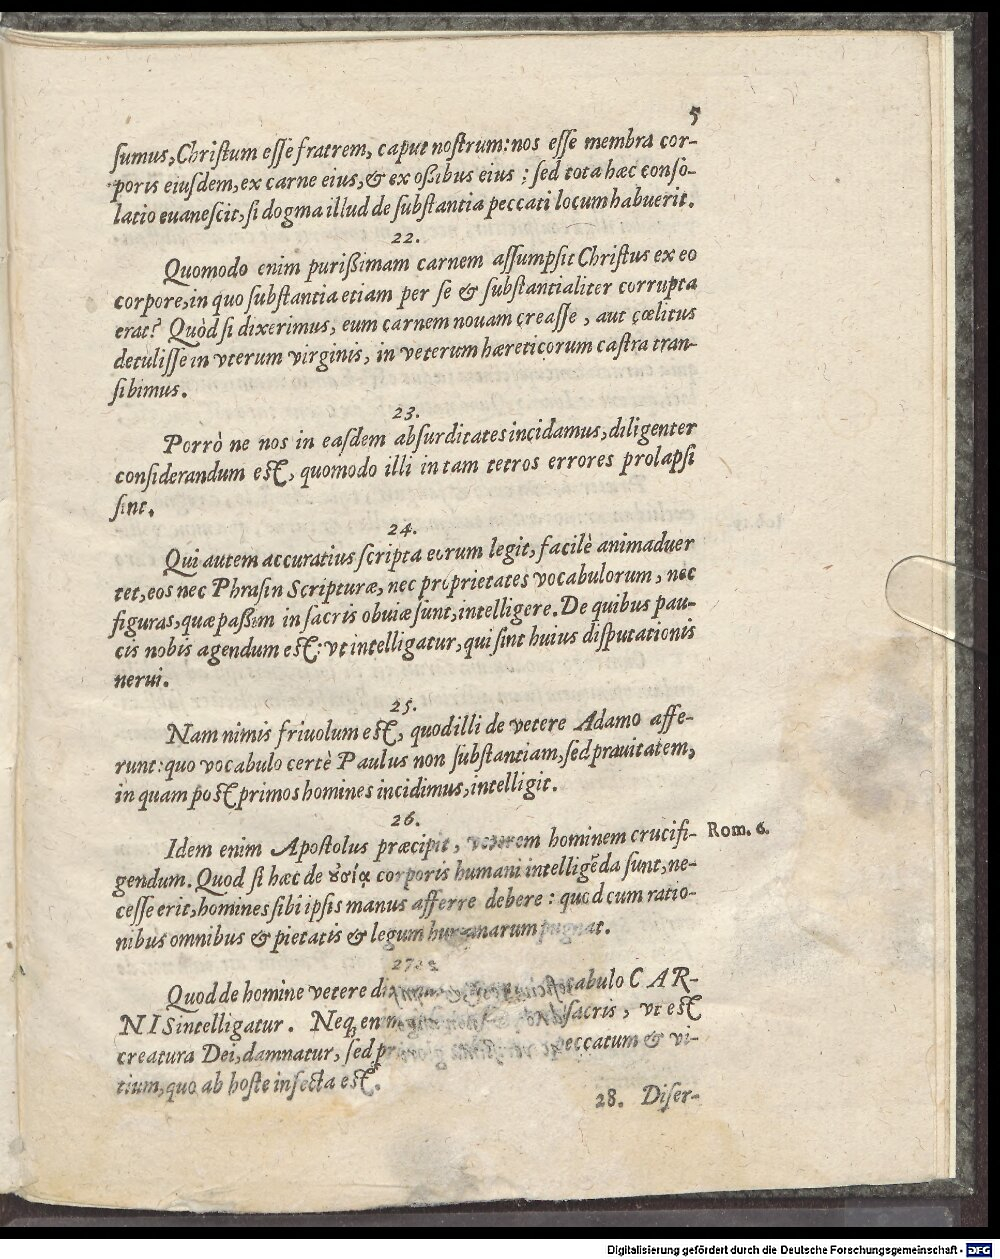 5
sumus, Christum esse fratrem, caput nostrum: nos esse membra cor-
poris eiusdem, ex carne eius, & ex oßibus eius : sed tota hæc conso-
latio euanescit, si dogma illud de substantia peccati locum habuerit.
22.
Quomodo enim purißimam carnem assumpsit Christus ex eo
corpore, in quo substantia etiam per se & substantialiter corrupta
erat? Quòd si dixerimus, eum carnem nouam creasse, aut cœlitus
detulisse in vterum virginis, in veterum hæreticorum castra tran-
sibimus.
23.
Porrò ne nos in easdem absurditates incidamus, diligenter
considerandum est, quomodo illi in tam tetros errores prolapsi
sint.
24.
Qui autem accuratius scripta eorum legit, facilè animaduer
tet, eos nec Phrasin Scripturæ, nec proprietates vocabulorum, nec
figuras, quæ paßim in sacris obuiæ sunt, intelligere. De quibus pau-
cis nobis agendum est: vt intelligatur, qui sint huius disputationis
nerui.
25.
Nam nimis friuolum est, quod illi de vetere Adamo affe-
runt: quo vocabulo certè Paulus non substantiam, sed prauitatem,
in quam post primos homines incidimus, intelligit.
26.
Idem enim Apostolus præcipit, veterem hominem crucifi-
gendum. Quod si hæc de ȣσίᾳ corporis humani intelligẽda sunt, ne-
cesse erit, homines sibi ipsis manus afferre debere : quod cum ratio-
nibus omnibus & pietatis & legum humanarum pugnat.
Rom. 6.
27.
Quod de homine vetere CAR-
NIS intelligatur. Neq; sacris, vt est
creatura Dei, damnatur, sed peccatum & vi-
tium, quo ab hoste infecta est.
28. Diser-
Digitalisierung gefördert durch die Deutsche Forschungsgemeinschaft - DFG